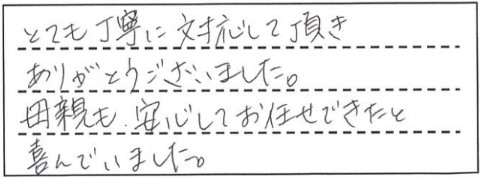 とても丁寧に対応して頂き
ありがとうございました。
母親も、安心してお任せできたと
喜んでいました。